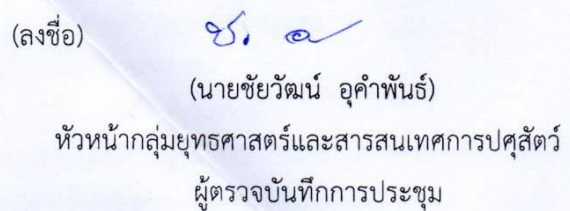 (ลงชื่อ) ช. อ
(นายชัยวัฒน์ อุคำพันธ์)
หัวหน้ากลุ่มยุทธศาสตร์และสารสนเทศการปศุสัตว์
ผู้ตรวจบันทึกการประชุม